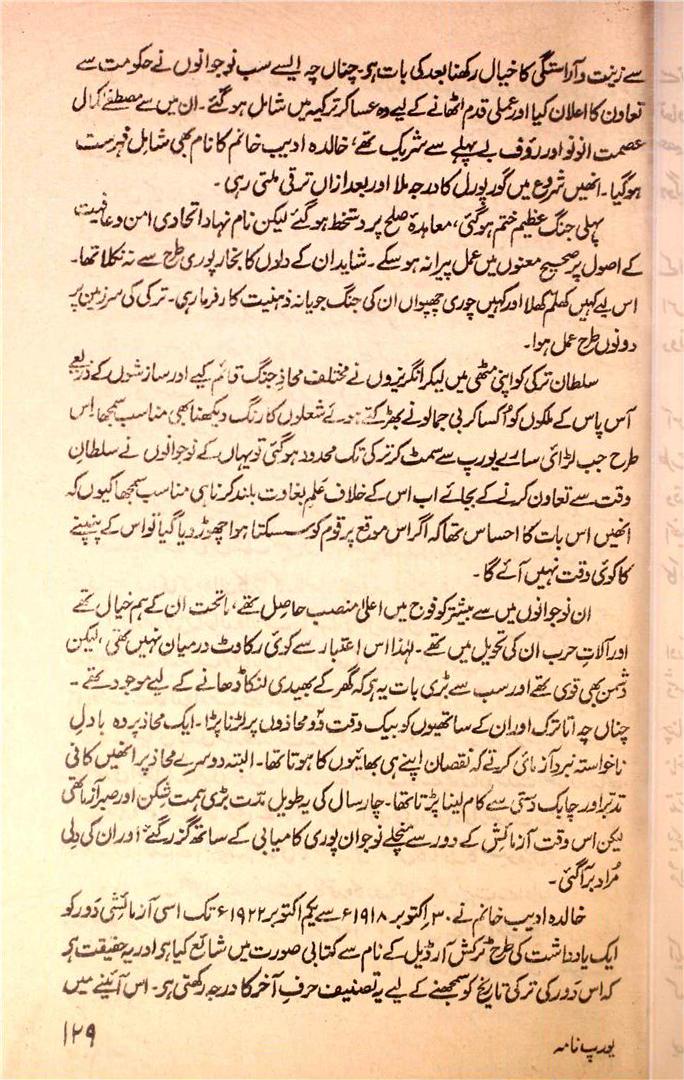 سے زینت و آراستگی کا خیال رکھنا بعد کی بات ہو۔ چناں چہ ایسے سب نوجوانوں نے حکومت سے
تعاون کا اعلان کیا اور عملی قدم اٹھانے کے لیے وہ عساکر ترکیہ میں شامل ہو گئے۔ ان میں سے مصطفےٰ کمال
عصمت انونو اور رؤف بے پہلے سے شریک تھے، خالدہ ادیب خانم کا نام بھی شامل فہرست
ہو گیا۔ انھیں شروع میں کورپورل کا درجہ ملا اور بعد ازاں ترقی ملتی رہی۔
پہلی جنگ عظیم ختم ہو گئی، معاہدۂ صلح پر دستخط ہو گئے لیکن نام نہاد اتحادی امن و عافیت
کے اصول پر صحیح معنوں میں عمل پیرا نہ ہو سکے۔ شاید ان کے دلوں کا بخار پوری طرح سے نہ نکلا تھا۔
اس لیے کہیں کھلّم کھلا اور کہیں چوری چھپواں ان کی جنگ جویانہ ذہنیت کارفرما رہی۔ ترکی کی سرزمین پر
دونوں طرح عمل ہوا۔
سلطان ترکی کو اپنی مٹھی میں لیکر انگریزوں نے مختلف محاذِ جنگ قائم کیے اور سازشوں کے ذریعے
آس پاس کے ملکوں کو اُکسا کر بی جمالو نے بھڑکتے ہوئے شعلوں کا رنگ دیکھنا بھی مناسب سمجھا اس
طرح جب لڑائی سارے یورپ سے سمٹ کر ترکی تک محدود ہو گئی تو یہاں کے نوجوانوں نے سلطانِ
وقت سے تعاون کرنے کے بجائے اب اس کے خلاف عَلمِ بغاوت بلند کرنا ہی مناسب سمجھا کیوں کہ
انھیں اس بات کا احساس تھا کہ اگر اس موقع پر قوم کو سسکتا ہوا چھوڑ دیا گیا تو اس کے پنپنے
کا کوئی وقت نہیں آئے گا۔
ان نوجوانوں میں سے بیشتر کو فوج میں اعلیٰ منصب حاصل تھے، ماتحت ان کے ہم خیال تھے
اور آلاتِ حرب ان کی تحویل میں تھے۔ لہٰذا اس اعتبار سے کوئی رکاوٹ درمیان نہیں تھی، لیکن
دُشمن بھی قوی تھے اور سب سے بڑی بات یہ ہی کہ گھر کے بھیدی لنکا ڈھانے کے لیے موجود تھے۔
چناں چہ اتاترک اور ان کے ساتھیوں کو بیک وقت دو محاذوں پر لڑنا پڑا۔ ایک محاذ پر وہ بادلِ
ناخواستہ نبرد آزمائی کرتے کہ نقصان اپنے ہی بھائیوں کا ہوتا تھا۔ البتہ دوسرے محاذ پر انھیں کافی
تدبّر اور چابک دستی سے کام لینا پڑتا تھا۔ چار سال کی یہ طویل مدّت بڑی ہمت شکن اور صبر آزما تھی
لیکن اس وقت آزمائش کے دور سے منچلے نوجوان پوری کامیابی کے ساتھ گزر گئے اور ان کی دِلی
مُراد بر آ گئی۔
خالدہ ادیب خانم نے ۳۰ اکتوبر ۱۹۱۸ء سے یکم اکتوبر ۱۹۲۲ء تک اسی آزمائشی دَور کو
ایک یادداشت کی طرح ٹرکش آرڈیل کے نام سے کتابی صورت میں شائع کیا ہو اور یہ حقیقت ہو
کہ اس دَور کی ترکی تاریخ کو سمجھنے کے لیے یہ تصنیف حرفِ آخر کا درجہ رکھتی ہو۔ اس آئینے میں
یورپ نامہ
۱۲۹